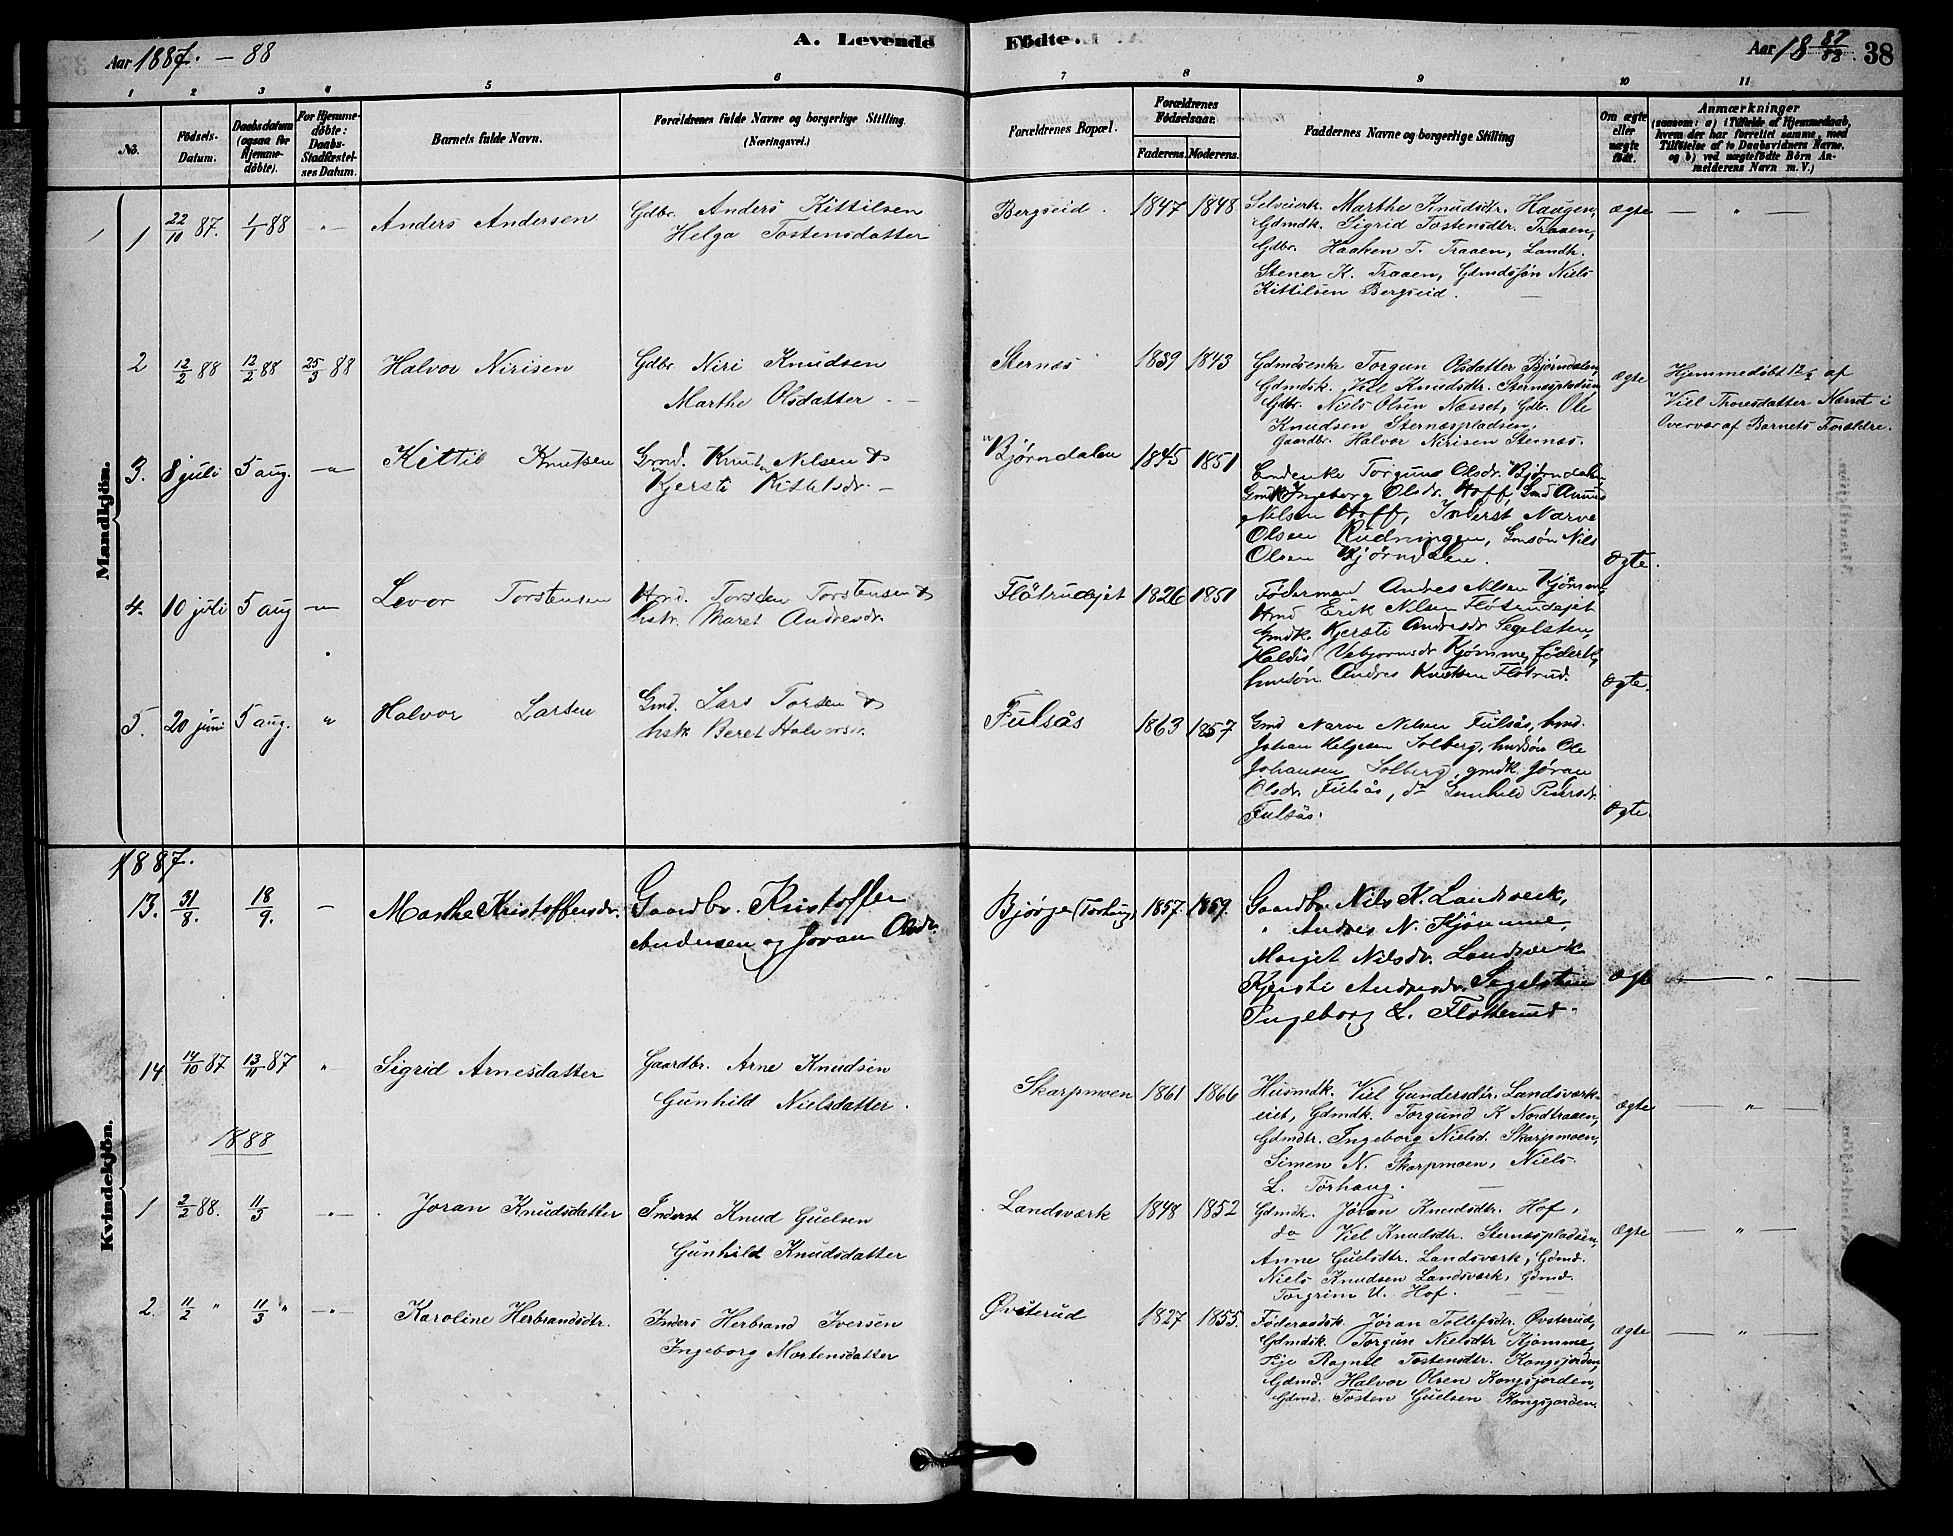 Aar 1887. – 88
A. Levende
Fødte.
Aar 18 87/88. 38
1 2 3 4 5 6 7 8 9 10 11
No.
Fødsels-
Datum.
Daabsdatum
(ogsaa for
Hjemme-
døbte).
For Hjemme-
døbte:
Daabs-
Stadfæstel-
ses Datum.
Barnets fulde Navn.
Forældrenes fulde Navne og borgerlige Stilling.
(Næringsvei.)
Forældrenes Bopæl.
Forældrenes
Fødselsaar.
Faderens. Moderens.
Faddernes Navne og borgerlige Stilling
Om ægte
eller
uægte
født.
Anmærkninger
(saasom: a) i Tilfælde af Hjemmedaab,
hvem der har forrettet samme, med
Tilføielse af to Daabsvidners Navne,
og b) ved uægtefødte Børn An-
melderens Navn m. V.)
Mandkjön.
1 22/10 87. 1/1 88 –"– Anders Andersen
Gdbr. Anders Kittilsen
Helga Tostensdatter
Bergseid. 1847 1848
Selveierk. Marthe Knudsdr. Haugen,
Gdmdk. Sigrid Tostensdtr. Traaen,
Gdbr. Haaken T. Traaen, Landh.
Stener K. Traaen, Gdmdssøn Niels
Kittilsen Bergseid.
ægte — " —
2 12/2 88 12/2 88 25/3 88 Halvor Nirisen
Gdbr. Niri Knudsen
Marthe Olsdatter. —
Sternæs 1839 1843
Gdmdsenke Torgun Olsdatter Bjørndalen,
Gdmdsk. Viel Knudsdtr. Sternæspladsen
Gdbr. Niels Olsen Næsset, Gdbr. Ole
Knudsen Sternæspladsen,
Gaardbr. Halvor Nirisen Sternæs.
ægte
Hjemmedøbt 12/2 af
Viel Thoresdatter Næset i
Overvær af Barnets Forældre.
3. 8 juli 5 aug. –"– Kittil Knutsen
Gmd. Knud Nilsen &
Kjersti Kittilsdr. –
Bjørndalen 1845 1851
Torguns Olsdr. Bjørndalen
Gmdk Ingeborg Olsdr. Hoff, Gmd Amund
Nilsen Hoff, Inderst Narve
Olsen Rudningen, Gmsøn Nils
Olsen Bjørndalen.
Ægte.
4. 10 juli 5 aug –"– Levor Torstensen
Hmd. Torsten Torstensen &
hstr. Maret Andresdr.
Fløtrudejet 1826 1851
Fødermand Andres Nilsen Kjømme,
Hmd Erik Nilsen Fløtrudejet
Gmdk. Kjersti Andresdr Segelsten,
Haldis Vebjørnsdr Kjømme, føderk,
hmsøn Andres Knutsen Fløtrud.
Ægte.
5. 20 juni 5 aug. " Halvor Larsen
Gmd. Lars Torsen &
hstr. Beret Halvorsdr.
Fulsås 1863 1857
Gmd Narve Nilsen Fulsås, hmd.
Johan Helgesen Solberg, hmdsøn Ole
Johansen Solberg, gmdk. Jøran
Olsdr. Fulsås, do Gunhild Pedersdr.
Fulsås.
Ægte.
Kvindekjön.
1887.
13. 31/8. 18/9. – Marthe Kristoffersdr.
Gaardbr. Kristoffer
Andersen og Joran Olsdr.
Bjørge (Torhaug) 1857 1859.
Gaardbr. Nils K. Landsverk,
" Andres N. Kjømme,
Margit Nilsdr. Landsverk
Kjersti Andresdr. Segelstein
Ingeborg L. Fløtterud.
ægte — " —
14 14/10 87 13/11 87 " Sigrid Arnesdatter
Gaardbr. Arne Knudsen
Gunhild Nielsdatter.
Skarpmoen 1861 1866
Husmdk. Viel Gundersdtr. Landsverk-
eiet, Gdmdk. Torgund K Nordtraaen,
Gdmdtr. Ingeborg Nielsd. Skarpmoen,
Simen N. Skarpmoen, Niels
L. Tørhaug. —
ægte — " —
1888
1 2/2 88. 11/3 –"– Joran Knudsdatter
Inderst Knud Guelsen
Gunhild Knudsdatter
Landsværk 1848 1852
Gdmdk. Jøran Knudsdtr. Hof,
do Viel Knudsdtr. Sternæspladsen,
Anne Guelsdtr. Landsværk, Gdmd.
Niels Knudsen Landsværk, Gdmd.
Torgrim U. Hof. —
ægte — " —
2 11/2 " 11/3 " –"– Karoline Herbrandsdtr.
Inders Herbrand Iversen
Ingeborg Mortensdatter
Øvsterud 1827 1855.
Føderaadsk. Jøran Tollefsdtr. Øvsterud,
Gdmdsk. Torgun Nielsdtr Kjømme,
Pige Ragnil Tostensdtr. Kongsjorden,
Gdmd. Halvor Olsen Kongsjorden,
Gdmd. Tosten Guelsen Kongsjorden.
ægte — " —